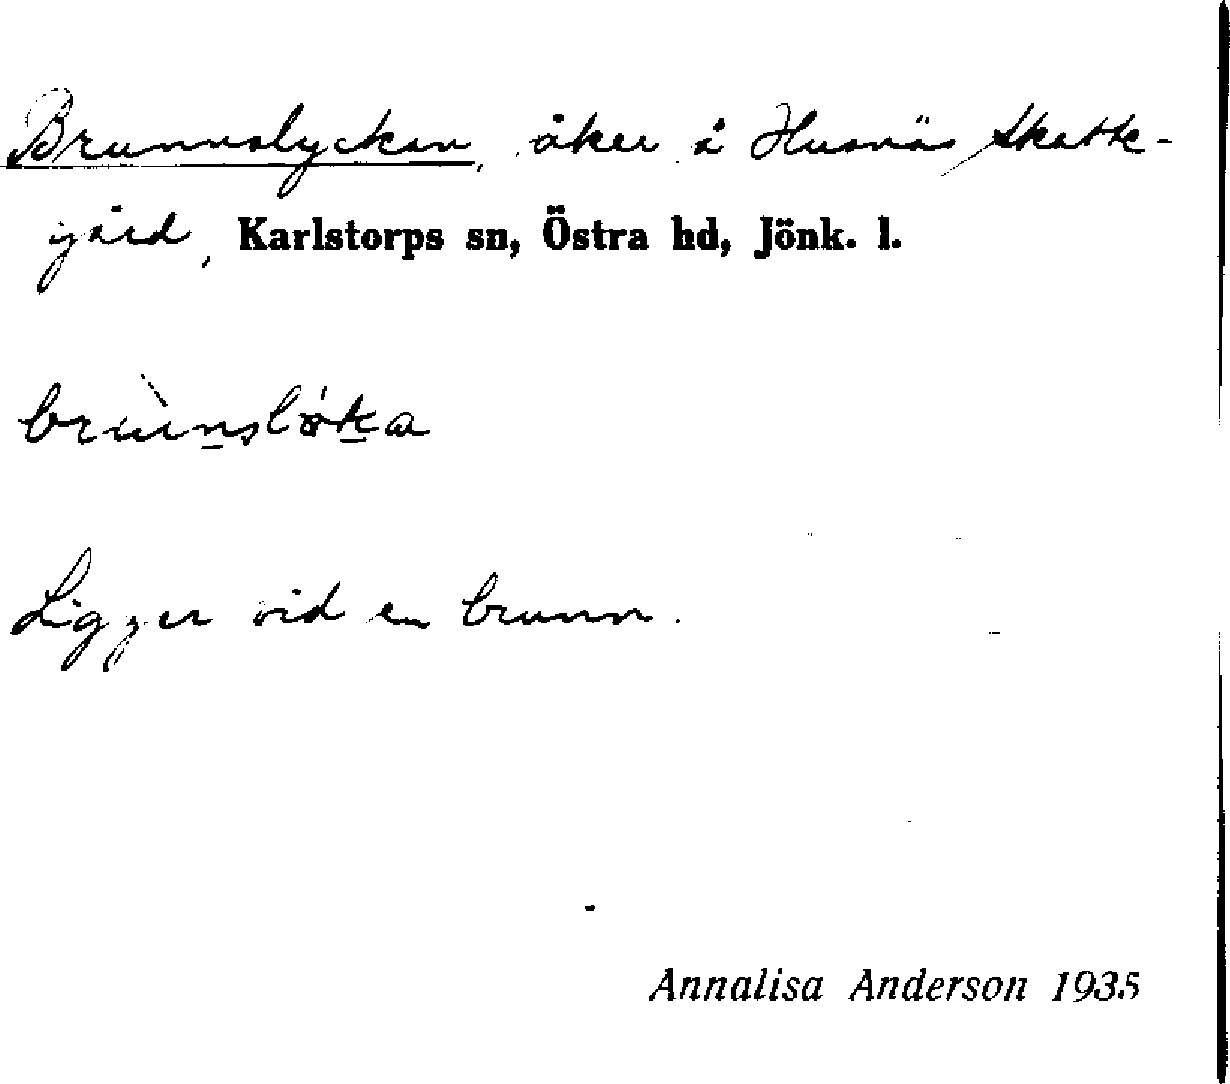 Brunnslyckan, åker å Husnäs Skatte-
gård, Karlstorps sn, Östra hd, Jönk. l.
Ligger vid en brunn.
Annalisa Anderson 1935